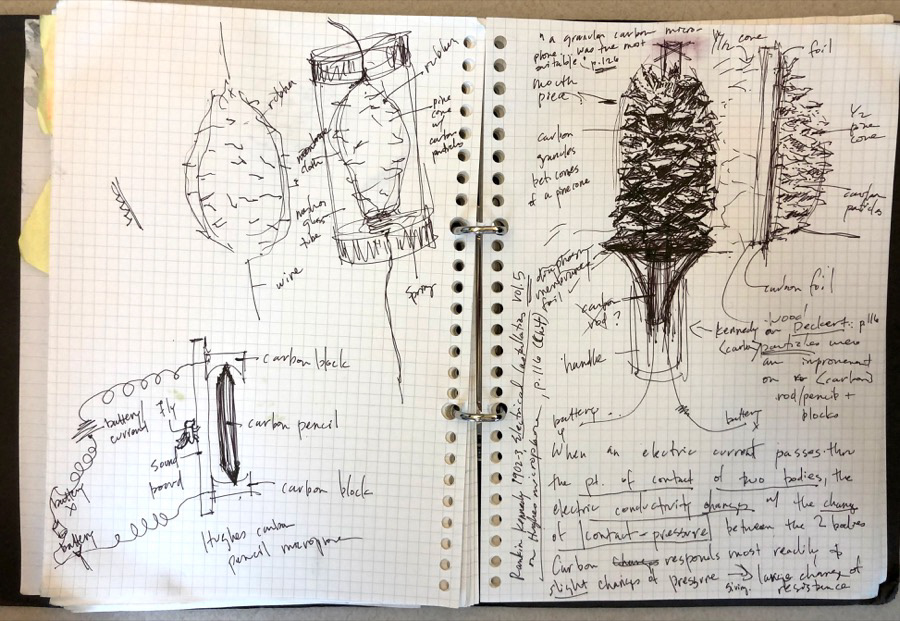 rubber
membrane
cloth
narrow
glass
tube
wire
rubber
pine
cone
w/
carbon
particles
Spring
carbon block
battery/
current
Fly
carbon pencil
sound
board
battery
battery
carbon block
Hughes carbon
pencil microphone
"a granular carbon micro-
phone... was the most
suitable" p.126
mouth
piece
carbon
granules
bet. cones
of a pinecone
1/2 cone
foil
1/2
pine
cone
carbon
particles
diaphragm
membrane
foil
carbon
rod?
handle
carbon foil
Kennedy on Deckert: p116
wood
(carbon) particles were
an improvement
on (carbon)
rod/pencil +
blocks
battery
battery
Rankin Kennedy 1902-3, Electrical Installations vol. 5
on Hughes microphone, p. 116
When an electric current passes thru
the pt. of contact of two bodies, the
electric conductivity changes w/ the change
of contact-pressure between the 2 bodies
Carbon responds most readily of
slight change of pressure → large change of
giving resistance